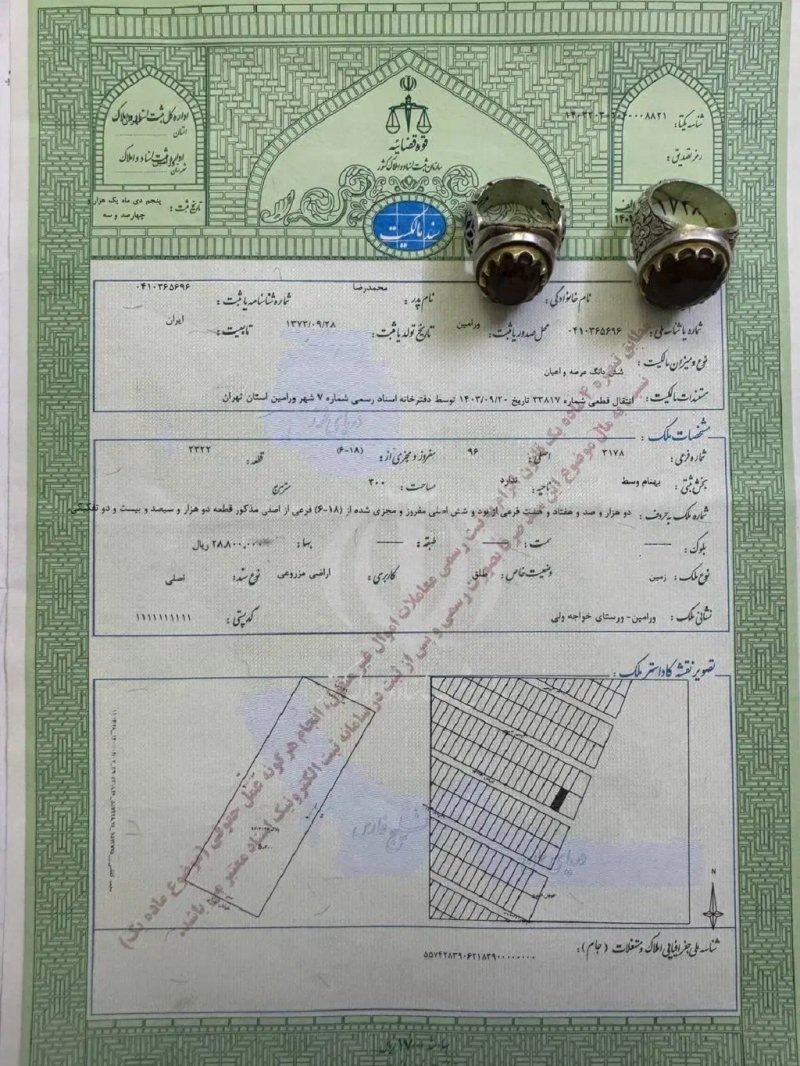 اداره کل ثبت اسناد و املاک
استان
اداره ثبت اسناد و املاک
شهرستان
تاریخ ثبت : پنجم دی ماه یک هزار و
چهارصد و سه
قوه قضائیه
سازمان ثبت اسناد و املاک کشور
سند مالکیت
شناسه یکتا :
رمز تصدیق :
الف
نام خانوادگی :
نام پدر : محمدرضا
شماره شناسنامه یا ثبت : ۰۴۱۰۳۶۵۶۹۶
شماره یا شناسه ملی : ۰۴۱۰۳۶۵۶۹۶
محل صدور یا ثبت : ورامین
تاریخ تولد یا ثبت : ۱۳۷۳/۰۹/۲۸
تابعیت : ایران
نوع و میزان مالکیت : شش دانگ عرصه و اعیان
مستندات مالکیت : انتقال قطعی شماره ۳۳۸۱۷ تاریخ ۱۴۰۳/۰۹/۲۰ توسط دفترخانه اسناد رسمی شماره ۷ شهر ورامین استان تهران
مشخصات ملک :
شماره فرعی : ۲۱۷۸
اصلی : ۹۶
مفروز و مجزی از : (۶-۱۸)
قطعه : ۲۳۲۲
بخش ثبتی : بهنام وسط
ناحیه : ندارد
مساحت : ۳۰۰
مترمربع
شماره ملک به حروف : دو هزار و صد و هفتاد و هشت فرعی از نود و شش اصلی مفروز و مجزی شده از (۱۸-۶) فرعی از اصلی مذکور قطعه دو هزار و سیصد و بیست و دو تفکیکی
بلوک :
سمت :
طبقه :
بها : ۲۸,۸۰۰,۰۰۰ ریال
نوع ملک : زمین
وضعیت خاص : طلق
کاربری : اراضی مزروعی
نوع سند : اصلی
نشانی ملک : ورامین- ورستای خواجه ولی
کدپستی : ۱۱۱۱۱۱۱۱۱۱
تصویر نقشه کاداستر ملک :
N
شناسه ملی جغرافیایی املاک و مستغلات (جام) :
مطابق تبصره ۴ ماده یک قانون الزام به ثبت رسمی معاملات اموال غیر منقول، انجام هرگونه عمل حقوقی (موضوع ماده یک)
نسبت به مال موضوع این سند صرفا بصورت رسمی و پس از ثبت در سامانه ثبت الکترونیک اسناد معتبر می باشد.
دریای خزر
خلیج فارس